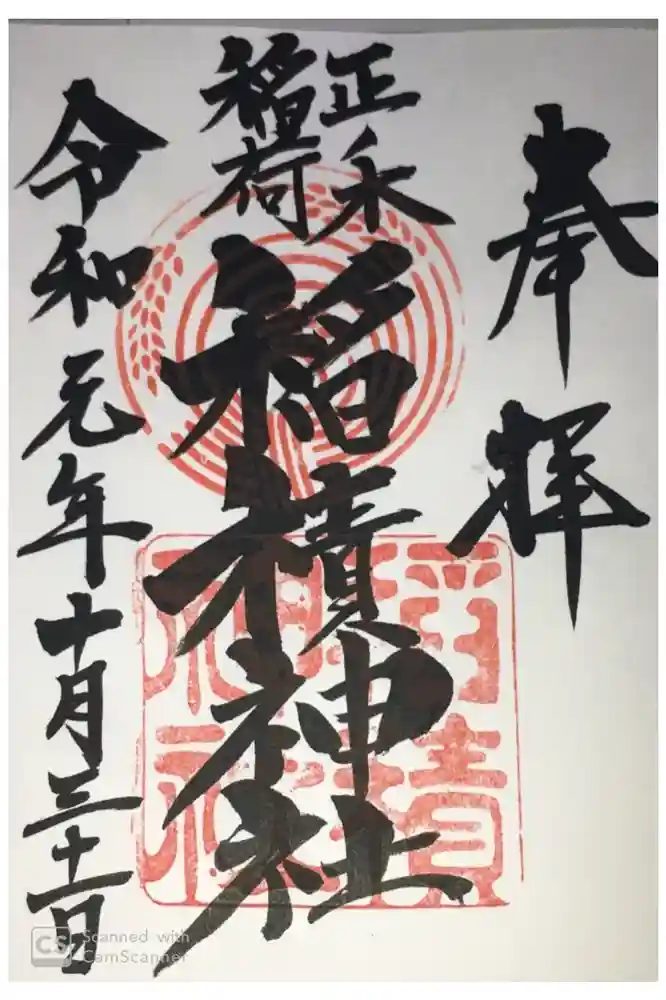 奉拝
正一永
稲荷
稲積神社
令和元年十月三十一日
稲積
神社
CS Scanned with
CamScanner